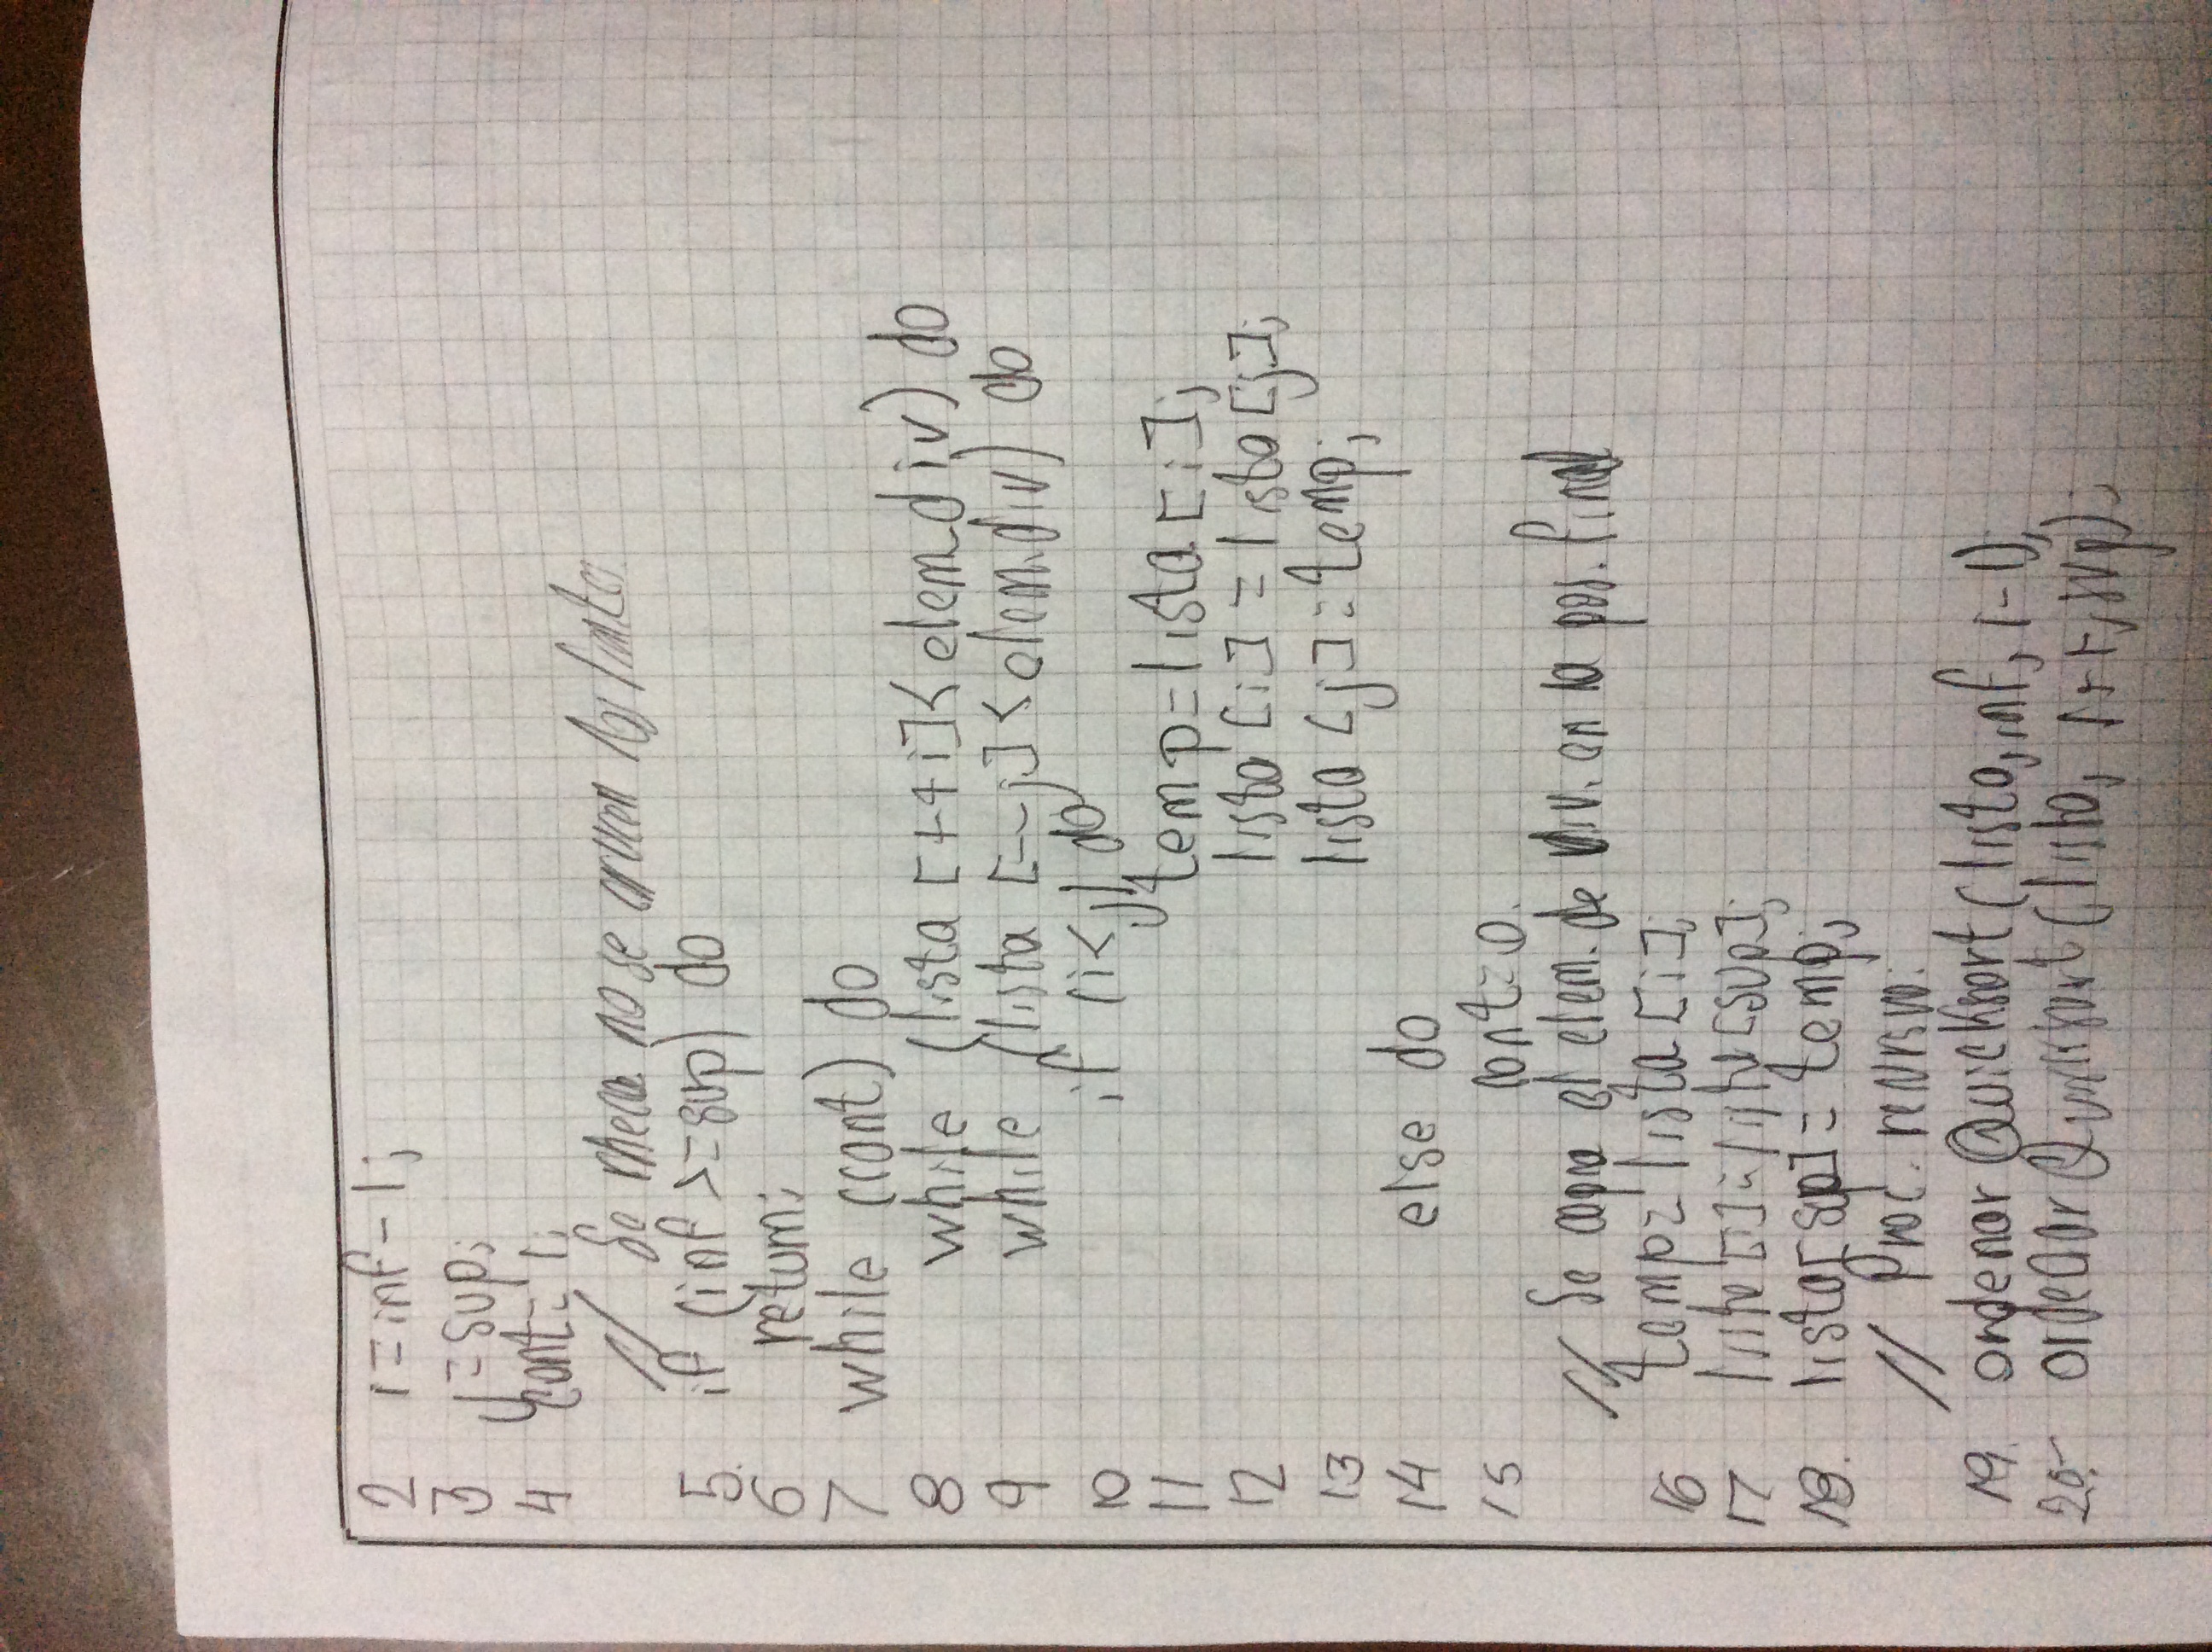 2 i=inf-1;
3 j=sup;
4 cont=1;
// Se checa no se crucen los
5. if (inf >=sup) do
6 return;
7 while (cont) do
8 while (lista [++i]< elem_div) do
9 while (lista [--j] < elem_div) do
10 if (i<j) do
11 temp=lista[i];
12 lista [i] = lista[j];
13 lista [j] = temp;
14 else do
15 cont=0.
// Se copia el elem. de div. en la pos. final
16 temp= lista [i];
17 lista [i] = lista [sup];
18. lista[sup] = temp;
// Proc. recursivo:
19. ordenar Quicksort (lista, inf, i-1);
20. ordenar Quicksort (lista, sup);